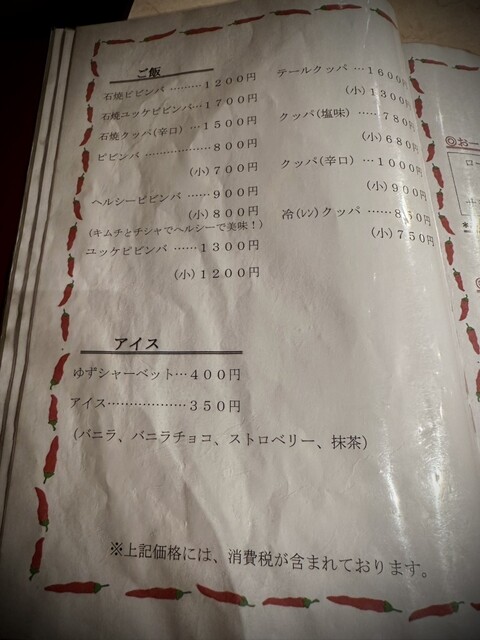 ご飯
石焼ビビンバ ………１２００円
石焼ユッケビビンバ…１７００円
石焼クッパ(辛口) …１５００円
ビビンバ ………………８００円
(小) ７００円
ヘルシービビンバ ……９００円
(小) ８００円
(キムチとチシャでヘルシーで美味！)
ユッケビビンバ ……１３００円
(小) １２００円
テールクッパ …１６００円
(小) １３００円
クッパ(塩味) ……７８０円
(小) ６８０円
クッパ(辛口) …１０００円
(小) ９００円
冷(ﾚﾝ)クッパ ……８５０円
(小) ７５０円
アイス
ゆずシャーベット…４００円
アイス………………３５０円
(バニラ、バニラチョコ、ストロベリー、抹茶)
※上記価格には、消費税が含まれております。
◎お一
ロー